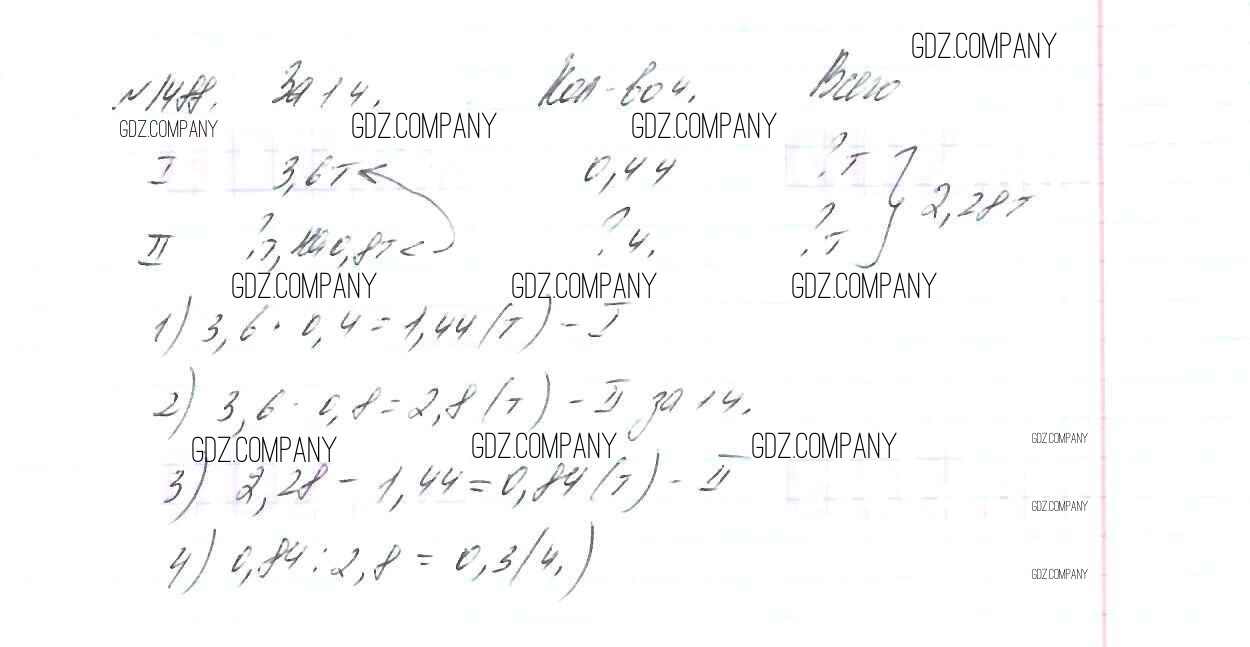 GDZ.COMPANY
№1488. За 1 ч. Кол-во ч. Всего
GDZ.COMPANY GDZ.COMPANY GDZ.COMPANY
I 3,6т 0,4ч ?т
2,28т
II ?т, на 0,8т ?ч. ?т
GDZ.COMPANY GDZ.COMPANY GDZ.COMPANY
1) 3,6 · 0,4 = 1,44 (т) – I
2) 3,6 - 0,8 = 2,8 (т) – II за 1 ч.
GDZ.COMPANY GDZ.COMPANY GDZ.COMPANY GDZ.COMPANY
3) 2,28 – 1,44 = 0,84 (т) – II
GDZ.COMPANY
4) 0,84 : 2,8 = 0,3 (ч.)
GDZ.COMPANY